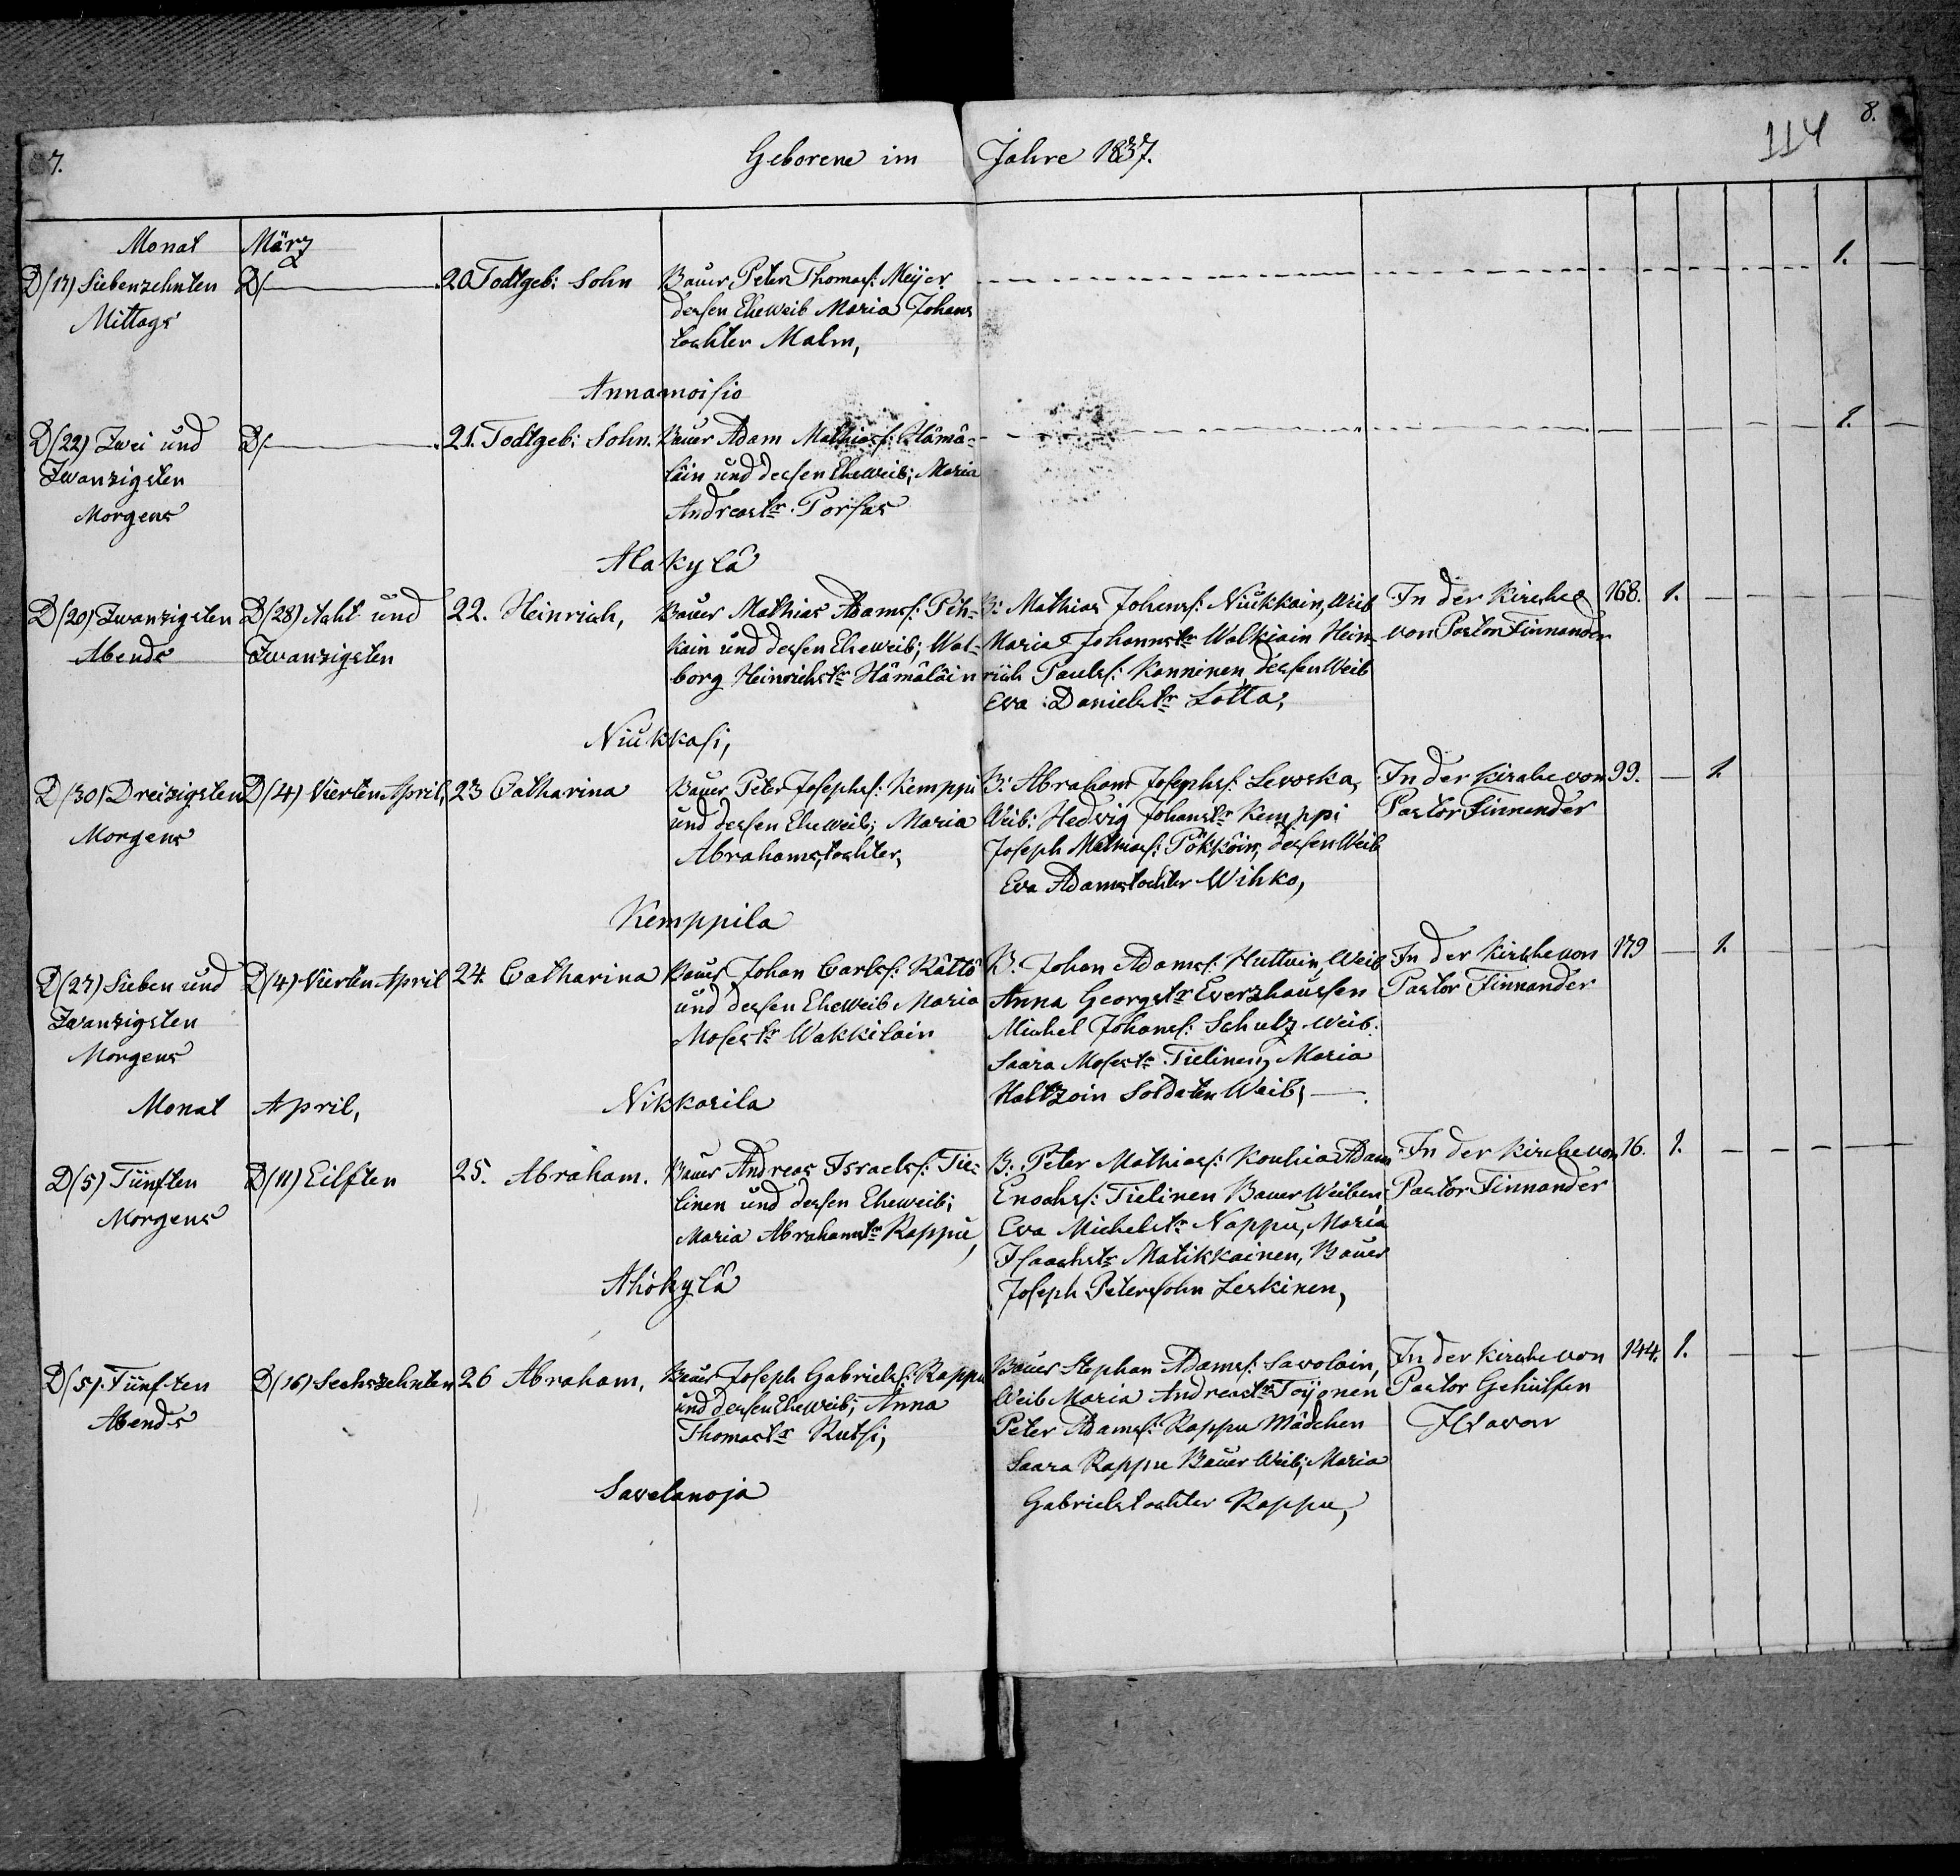 7.
Geborene im Jahre 1837.
114
8.
Monat März
D/(17) Siebenzehnten D/ 20. Todtgeb: Sohn Bauer Peter Thomasf: Meijer 1.
Mittags dessen Eheweib Maria Johans
tochter Malm,
Annamoisio
D/(22) Zwei und D/ 21. Todtgeb: Sohn. Bauer Adam Mathiasf: Hämä- 1.
Zwanzigsten läin und dessen Eheweib; Maria
Morgens Andreastr. Porsas
Alakylä
D/(20) Zwanzigsten D/(28) Acht und 22. Heinrich, Bauer Mathias Adamsf: Pih- B: Mathias Johansf: Niukkain, Weib In der Kirche 168. 1.
Abends Zwanzigsten kain und dessen Eheweib; Wal- Maria Johannstr Walkiain Hein- von Pastor Finnander
borg Heinrichstr Hämäläin rich Paulsf: Kanninen, dessen Weib
Eva Danielstr Lotta,
Niukkasi,
D/(30) Dreizigsten D/(4) Vierten April, 23 Catharina Bauer Peter Josephsf: Kemppi B: Abraham Josephsf: Levoska, In der Kirche von 99. 1.
Morgens und dessen Eheweib; Maria Weib: Hedvig Johanstr Kemppi Pastor Finnander
Abrahamstochter, Joseph Mathiasf: Pökköin, dessen Weib
Eva Adamstochter Wihko,
Kemppila
D/(27) Sieben und D/(4) Vierten April 24. Catharina Bauer Johan Carlsf: Rättö B. Johan Adamsf: Huttuin, Weib In der Kirche von 179 1.
Zwanzigsten und dessen Eheweib Maria Anna Georgstr Everzhaussen Pastor Finnander
Morgens Mosestr Wakkilain Michel Johansf: Schulz Weib.
Saara Mosestr Tielinen, Maria
Monat April, Nikkarila Haltzoin Soldaten Weib,
D/(5) Fünften D/(11) Eilften 25. Abraham. Bauer Andreas Israelsf: Tie- B: Peter Mathiasf: Kouhia Adam In der Kirche von 16. 1.
Morgens linen und dessen Eheweib; Enochsf: Tielinen Bauer Weiber Pastor Finnander
Maria Abrahamstr Rappu, Eva Michelstr Nappu, Maria
Isaachstr Matikkainen, Bauer
Ahokylä Joseph Peterssohn Leskinen,
D/(5) Fünften D/(16) Sechszehnten 26 Abraham, Bauer Joseph Gabrielsf: Rappu Bauer Stephan Adamsf: Savolain, In der Kirche von 144. 1.
Abends und dessen Eheweib; Anna Weib Maria Andreastr Toijonen Pastor Gehülfen
Thomastr Rutsi, Peter Adamsf: Rappu Mädchen
Saara Rappu Bauer Weib; Maria
Savelanoja Gabrielstochter Rappu,